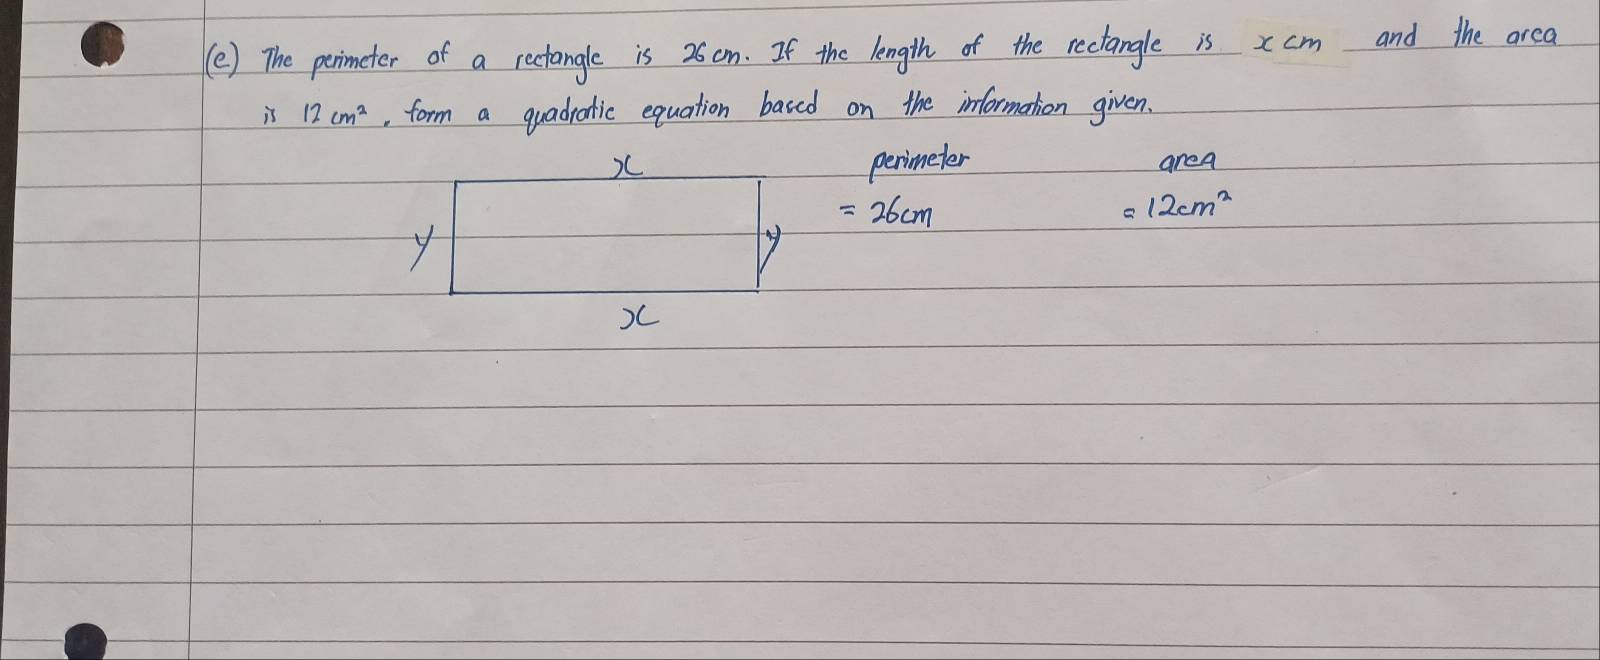 (e) The perimeter of a rectangle is 26 cm. If the length of the rectangle is x cm and the area
is 12 cm², form a quadratic equation based on the information given.
x perimeter area
= 26cm = 12cm²
y y
x